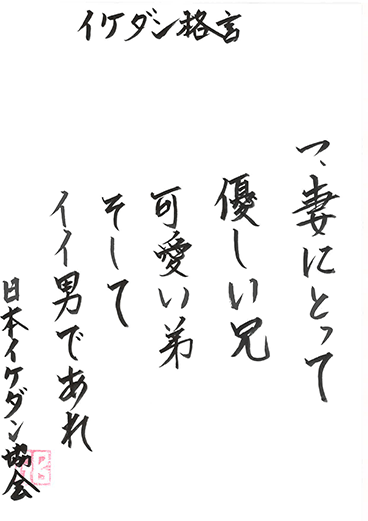 イケダン格言
一、妻にとって
優しい兄
可愛い弟
そして
イイ男であれ
日本イケダン協会